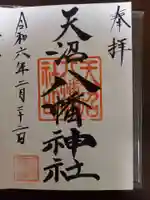 奉拝
天沼八幡神社
令和六年二月二十二日